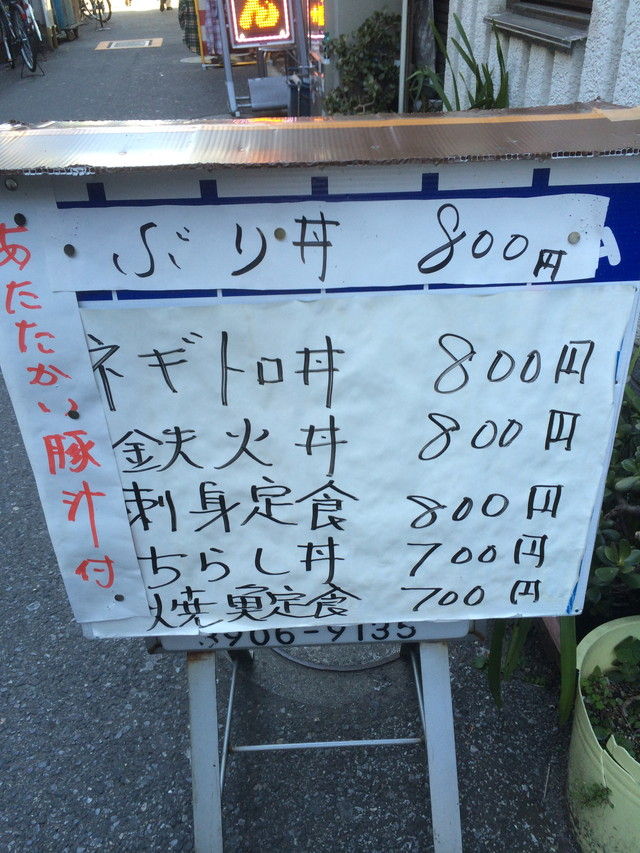 ぶり丼 800円
ネギトロ丼 800円
鉄火丼 800円
刺身定食 800円
ちらし丼 700円
焼魚定食 700円
あたたかい豚汁付
3906-9135